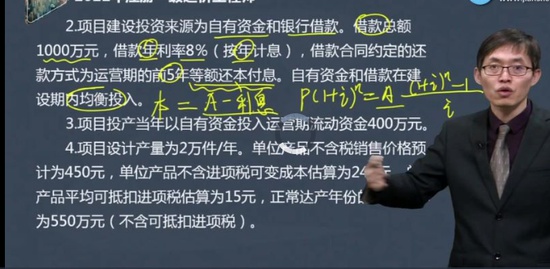 2.项目建设投资来源为自有资金和银行借款。借款总额
1000万元，借款年利率8%（按年计息），借款合同约定的还
款方式为运营期的前5年等额还本付息。自有资金和借款在建
设期内均衡投入。
本 = A－利息
P(1+i)ⁿ = A (1+i)ⁿ－1 / i
3.项目投产当年以自有资金投入运营期流动资金400万元。
4.项目设计产量为2万件/年。单位产品不含税销售价格预
计为450元，单位产品不含进项税可变成本估算为24
产品平均可抵扣进项税估算为15元，正常达产年份的
为550万元（不含可抵扣进项税）。